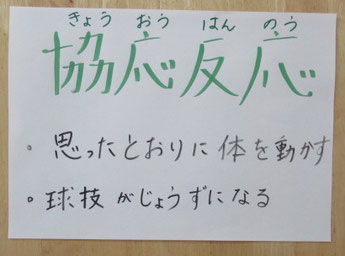 きょう おう はん のう
協応反応
。思ったとおりに体を動かす
。球技がじょうずになる